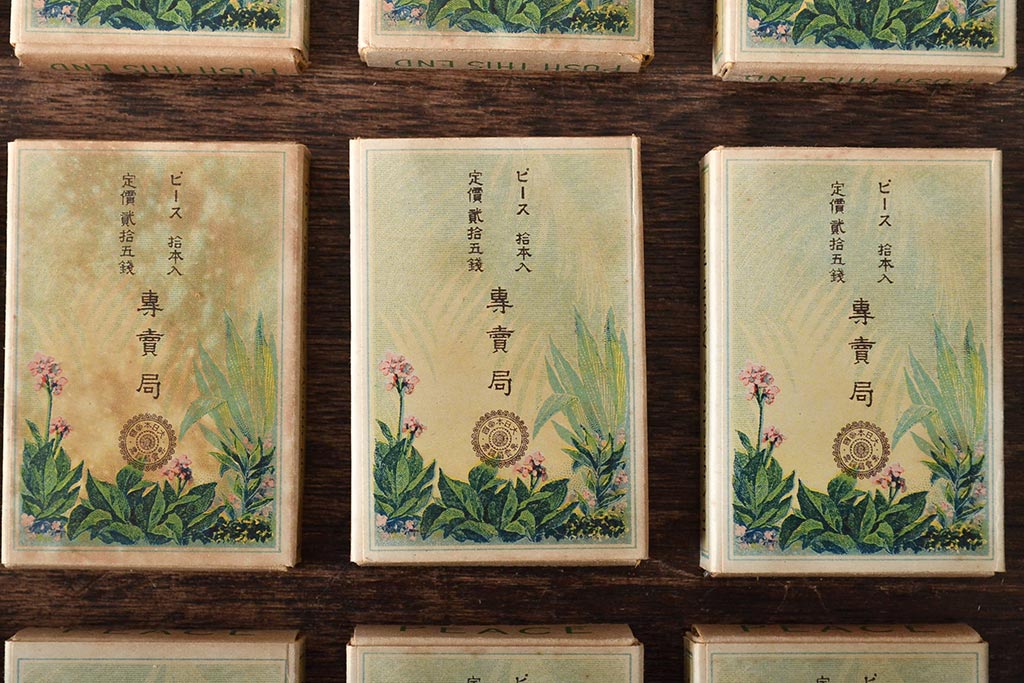 PUSH THIS END
PUSH THIS END
PUSH THIS END
ピース 拾本入
定價 貳拾五錢
專賣局
ピース 拾本入
定價 貳拾五錢
專賣局
ピース 拾本入
定價 貳拾五錢
專賣局
PEACE
PEACE
PEACE
ピ
定
ピ
定
ピ
定